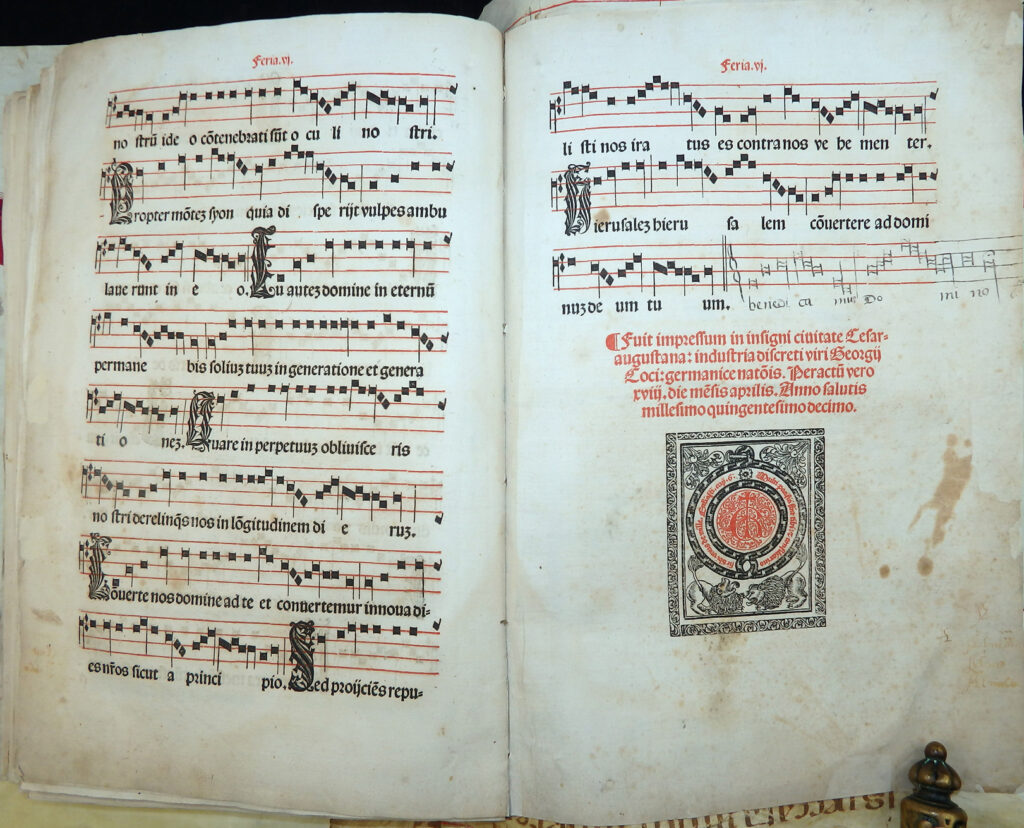 Feria.vj.
no strũ ide o cõtenebrati sũt o cu li no stri.
Propter mõtez syon quia di spe rijt vulpes ambu
laue runt in e o. Tu autez domine in eternũ
permane bis soliuz tuuz in generatione et genera
ti o nez. Quare in perpetuuz obliuisce ris
no stri derelinq̃s nos in lõgitudinem di e ruz.
Cõuerte nos domine ad te et conuertemur innoua di-
es nr̃os sicut a princi pio. Sed proijciẽs repu-
Feria.vj.
li sti nos ira tus es contra nos ve he men ter.
Hierusalez hieru sa lem cõuertere ad domi
nuz de um tu um. benedi ca mus Do mi no
¶Fuit impressum in insigni ciuitate Cesar-
augustana: industria discreti viri Georgij
Coci: germanice natõis. Peractũ vero
xviij. die mẽsis aprilis. Anno salutis
millesimo quingentesimo decimo.